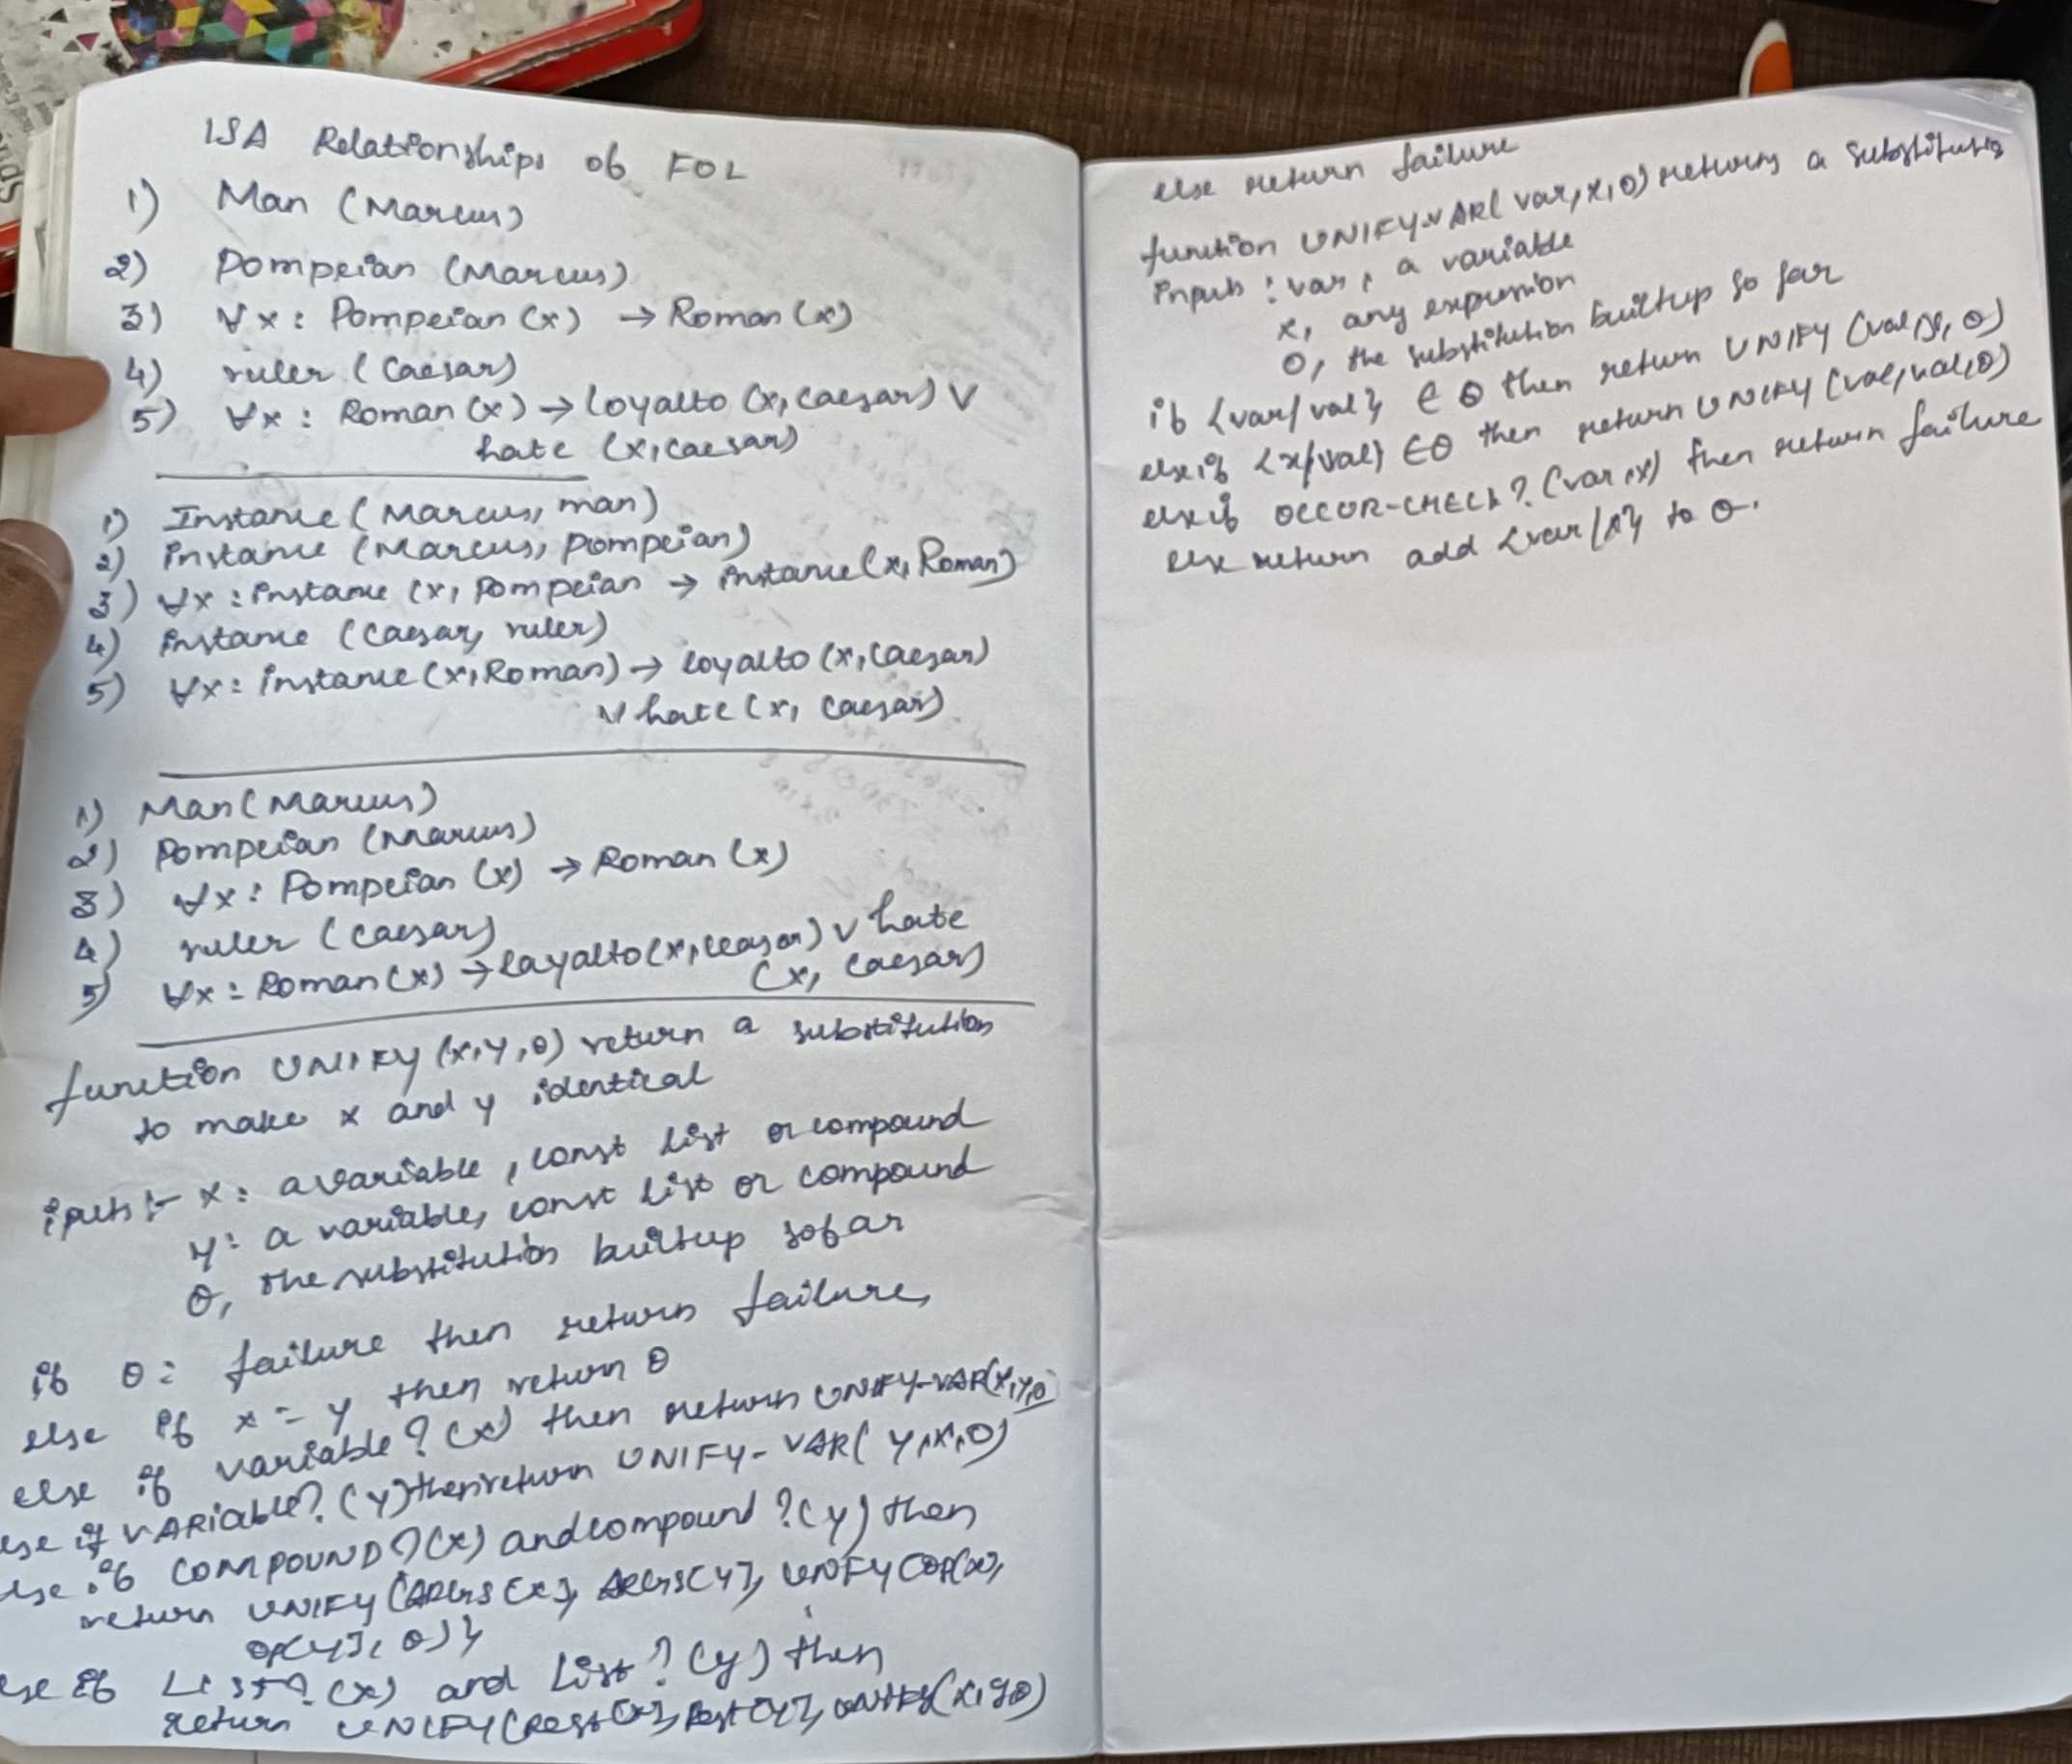 ISA Relationships of FOL
1) Man (Marcus)
2) Pompeian (Marcus)
3) ∀x: Pompeian (x) → Roman (x)
4) ruler (Caesar)
5) ∀x: Roman (x) → loyalto (x, Caesar) ∨
hate (x, caesar)
1) Instance (Marcus, man)
2) instance (Marcus, pompeian)
3) ∀x: instance (x, Pompeian → instance (x, Roman)
4) instance (Caesar, ruler)
5) ∀x: instance (x, Roman) → loyalto (x, Caesar)
∨ hate (x, Caesar)
1) Man (Marcus)
2) Pompeian (Marcus)
3) ∀x: Pompeian (x) → Roman (x)
4) ruler (caesar)
5) ∀x: Roman (x) → layalto (x, ceasar) ∨ hate
(x, caesar)
function UNIFY (x, y, θ) return a substitution
to make x and y identical
iputs :- x: a variable, const list or compound
y: a variable, const list or compound
θ, the substitution builtup sofar
if θ = failure then return failure,
else if x = y then return θ
else if variable? (x) then return UNIFY-VAR(x, y, θ
else if VARiable? (y) then return UNIFY-VAR( y, x, θ)
else if COMPOUND? (x) and compound ? (y) then
return UNIFY (ARGS [x], ARGS[y], UNIFY (OP[x],
OP[y], θ))
else if LIST? (x) and List? (y) then
return UNIFY (Rest [x], Rest [y], UNIFY (x, y θ)
else return failure
function UNIFY-VAR( var, x, θ) returns a substitution
inputs : var, a variable
x, any expression
θ, the substitution builtup so far
if {var/val} ∈ θ then return UNIFY (val, , θ)
else if {x/val} ∈ θ then return UNIFY (val, val, θ)
else if OCCUR-CHECK? (var, x) then return failure
else return add {var/x} to θ.